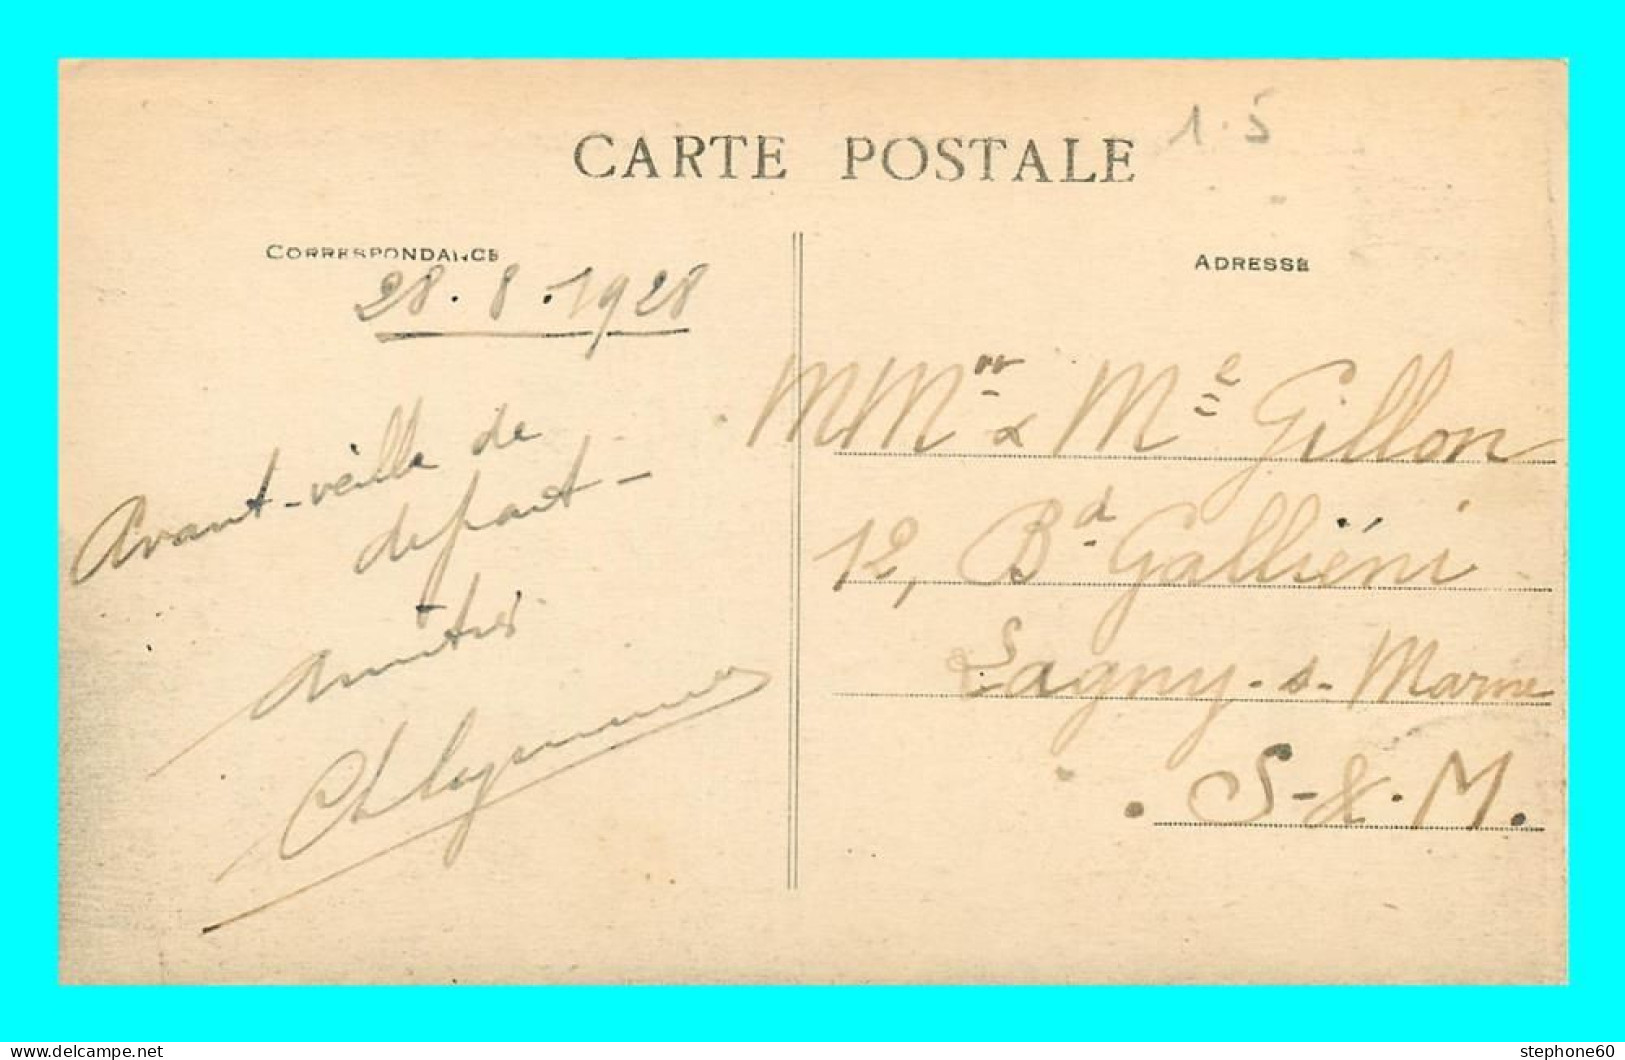 CARTE POSTALE
1.5
CORRESPONDANCE
28.8.1928
Avant-veille de
depart -
Amitiés
ADRESSE
MMr & Me Gillon
12, Bd Galliéni
Lagny-s-Marne
S-&-M.
www.delcampe.net
stephone60